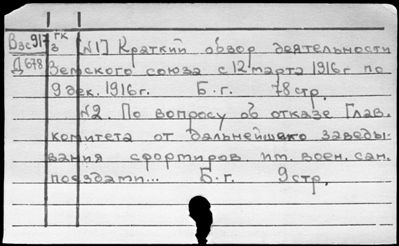 Взс917 гк
з [№1] Краткий обзор деятельности
Д678 Земского союза с 12 марта 1916г по
9 дек. 1916г. Б.г. 78 стр.
№2. По вопросу об отказе Глав.
комитета от дальнейшего заведы-
вания сформиров. им. воен. сан.
поездами... Б.г. 9 стр.